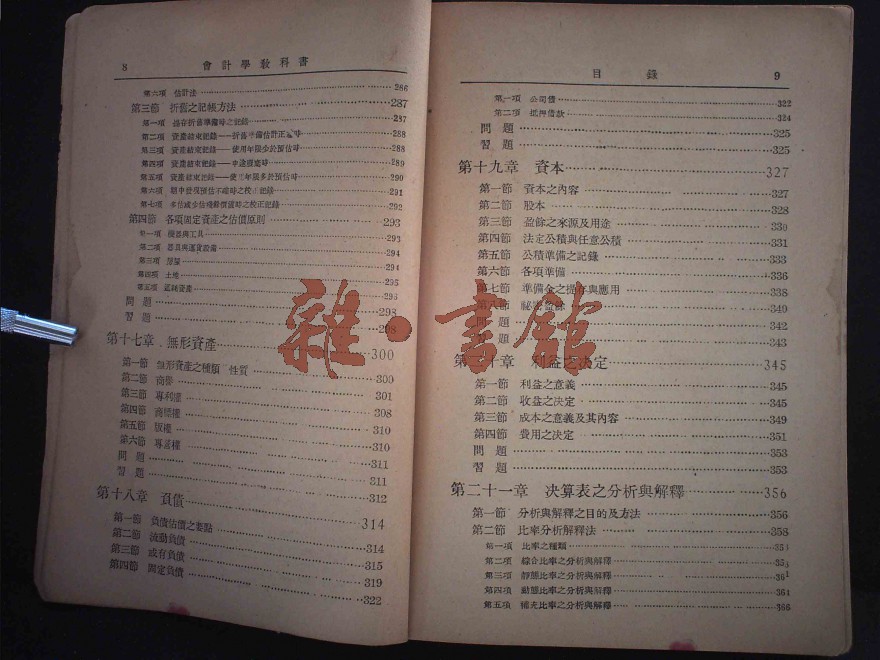 8 會計學敎科書
第六項 估計法 286
第三節 折舊之記帳方法 287
第一項 提存折舊準備時之記錄 287
第二項 資產結束記錄——折舊準備估計正確時 288
第三項 資產結束記錄——使用年限少於預估時 288
第四項 資產結束記錄——中途賣却時 289
第五項 資產結束記錄——使用年限多於預估時 290
第六項 期中發現預估不確時之校正記錄 291
第七項 多估或少估殘餘價值時之校正記錄 292
第四節 各項固定資產之估價原則 293
第一項 機器與工具 293
第二項 器具與運貨設備 294
第三項 房屋 294
第四項 土地 295
第五項 遞耗資產 296
問題 298
習題 298
第十七章 無形資產 300
第一節 無形資產之種類 性質 300
第二節 商譽 301
第三節 專利權 308
第四節 商標權 310
第五節 版權 310
第六節 專營權 311
問題 311
習題 312
第十八章 負債 314
第一節 負債估價之要點 314
第二節 流動負債 315
第三節 或有負債 319
第四節 固定負債 322
目錄 9
第一項 公司債 322
第二項 抵押借款 324
問題 325
習題 325
第十九章 資本 327
第一節 資本之內容 327
第二節 股本 328
第三節 盈餘之來源及用途 330
第四節 法定公積與任意公積 331
第五節 公積準備之記錄 333
第六節 各項準備 336
第七節 準備金之提存與應用 338
第八節 祕密盈餘 340
問題 342
習題 343
第二十章 利益之決定 345
第一節 利益之意義 345
第二節 收益之決定 345
第三節 成本之意義及其內容 349
第四節 費用之決定 351
問題 353
習題 353
第二十一章 決算表之分析與解釋 356
第一節 分析與解釋之目的及方法 356
第二節 比率分析解釋法 358
第一項 比率之種類
第二項 綜合比率之分析與解釋
第三項 靜態比率之分析與解釋 361
第四項 動態比率之分析與解釋 364
第五項 補充比率之分析與解釋 366
雜·書館